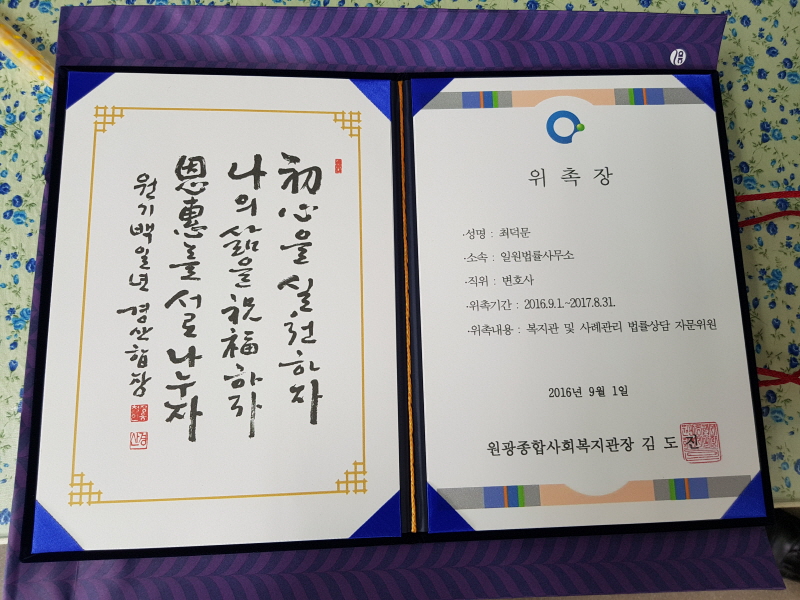 初心을 실천하자
나의 삶을 祝福하라
恩惠를 서로 나누자
원기백일년 경산합장
위촉장
·성명 : 최덕문
·소속 : 일원법률사무소
·직위 : 변호사
·위촉기간 : 2016.9.1.~2017.8.31.
·위촉내용 : 복지관 및 사례관리 법률상담 자문위원
2016년 9월 1일
원광종합사회복지관장 김도진